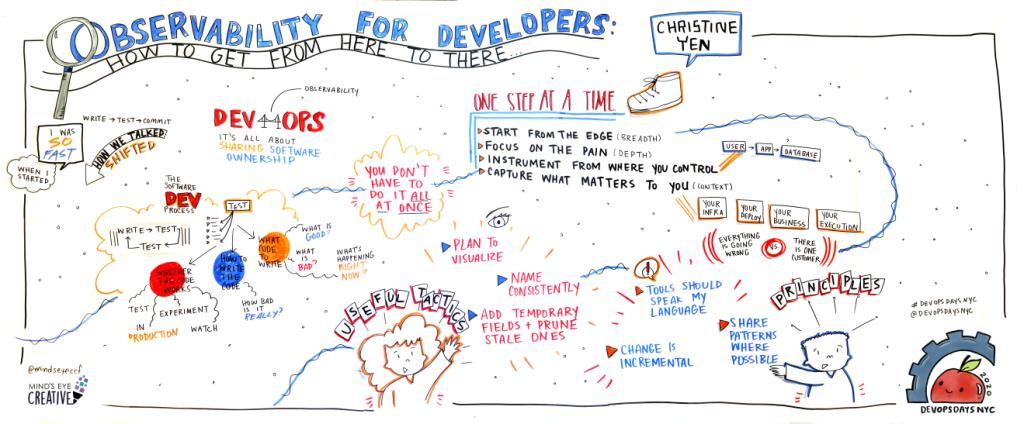 OBSERVABILITY FOR DEVELOPERS:
HOW TO GET FROM HERE TO THERE...
CHRISTINE
YEN
WRITE → TEST → COMMIT
I WAS
SO
FAST
WHEN I
STARTED
HOW WE TALKED
SHIFTED
OBSERVABILITY
DEV OPS
IT'S ALL ABOUT
SHARING SOFTWARE
OWNERSHIP
THE
SOFTWARE
DEV
PROCESS
WRITE → TEST
TEST
TEST
WHETHER
THE CODE
WORKS
HOW TO
WRITE THE
CODE
WHAT
CODE TO
WRITE
WHAT IS
GOOD?
WHAT
IS
BAD?
WHAT'S
HAPPENING
RIGHT
NOW?
HOW BAD
IS IT
REALLY?
TEST
EXPERIMENT
IN
PRODUCTION
WATCH
YOU DON'T
HAVE TO
DO IT ALL
AT ONCE
ONE STEP AT A TIME
START FROM THE EDGE (BREADTH)
FOCUS ON THE PAIN (DEPTH)
INSTRUMENT FROM WHERE YOU CONTROL
CAPTURE WHAT MATTERS TO YOU (CONTEXT)
USER → APP → DATABASE
?
YOUR
INFRA
YOUR
DEPLOY
YOUR
BUSINESS
YOUR
EXECUTION
EVERYTHING
IS GOING
WRONG
VS.
THERE
IS ONE
CUSTOMER
USEFUL TACTICS
PLAN TO
VISUALIZE
NAME
CONSISTENTLY
ADD TEMPORARY
FIELDS + PRUNE
STALE ONES
PRINCIPLES
TOOLS SHOULD
SPEAK MY
LANGUAGE
CHANGE IS
INCREMENTAL
SHARE
PATTERNS
WHERE
POSSIBLE
# DEVOPSDAYS NYC
@DEVOPSDAYSNYC
@mindseyeccf
MIND'S EYE
CREATIVE
2020
DEVOPSDAYS NYC